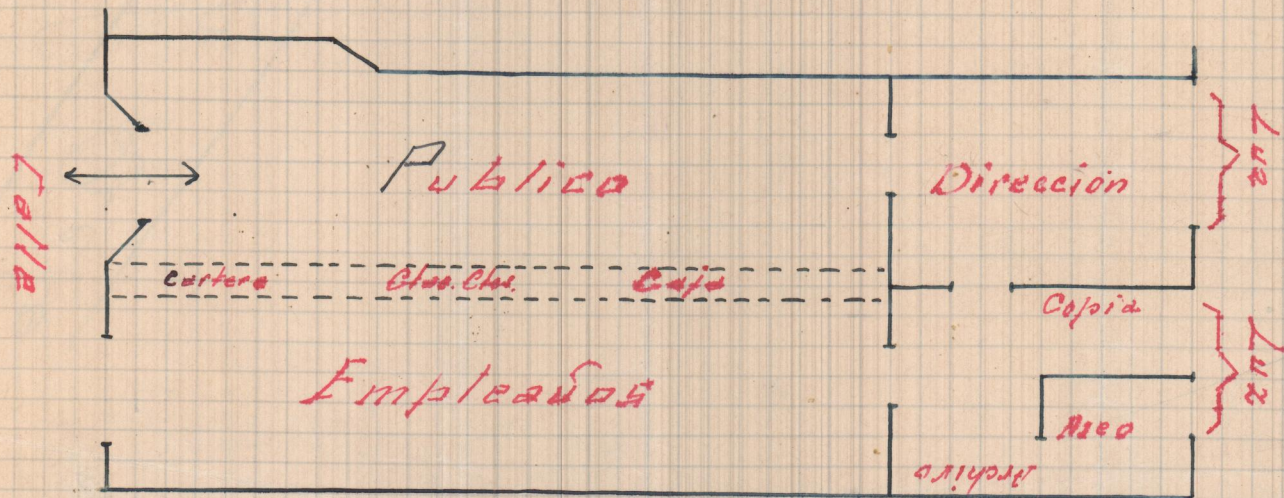 Calle
Publico
Dirección
Luz
Cartera
Ctas. Ctes.
Caja
Copia
Luz
Empleados
Aseo
Archivo